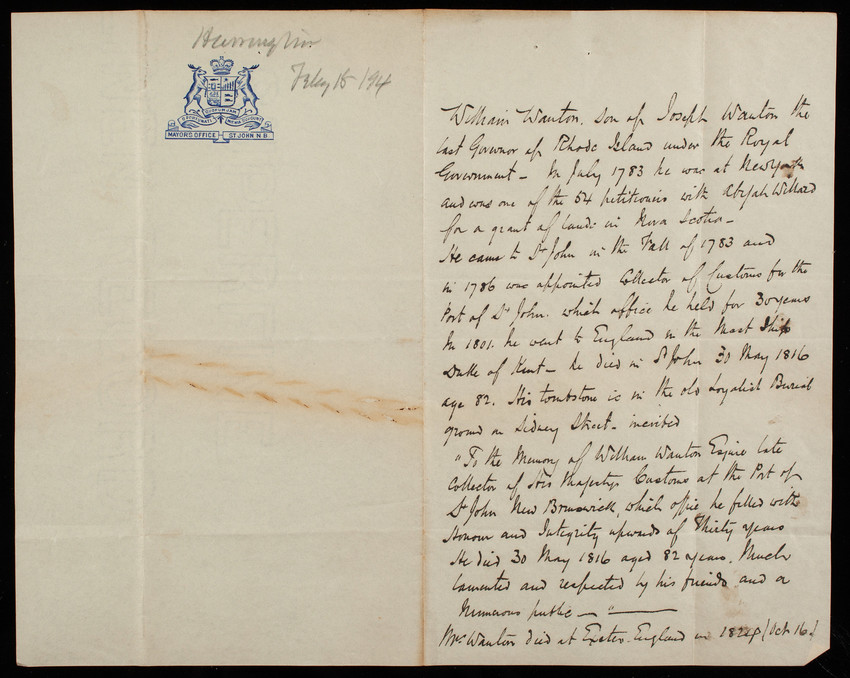 Harrington
Feby 15 / 94
O FORTUNATI QUORUM JAM MOENIA SURGUNT
MAYORS OFFICE ST JOHN N.B.
William Wanton. Son of Joseph Wanton the
last Govenor of Rhode Island under the Royal
Government – In July 1783 he was at New York
and was one of the 54 petitioners with Abijah Willard
for a grant of lands in Nova Scotia –
He came to St John in the Fall of 1783 and
in 1786 was appointed Collector of Customs for the
Port of St John. which office he held for 30 years
In 1801. he went to England in the Mast Ship
Duke of Kent – he died in St John 30 May 1816
age 82. His tombstone is in the old Loyalist Burial
ground on Sidney Street – inscribed
"To the Memory of William Wanton Esquire late
Collector of His Majestys Customs at the Port of
St John New Brunswick, which office he filled with
Honour and Integrity upwards of Thirty years
He died 30 May 1816 aged 82 years. Much
lamented and respected by his friends and a
numerous public – " –
Mrs Wanton died at Exeter England in 1824 (Oct 16.)